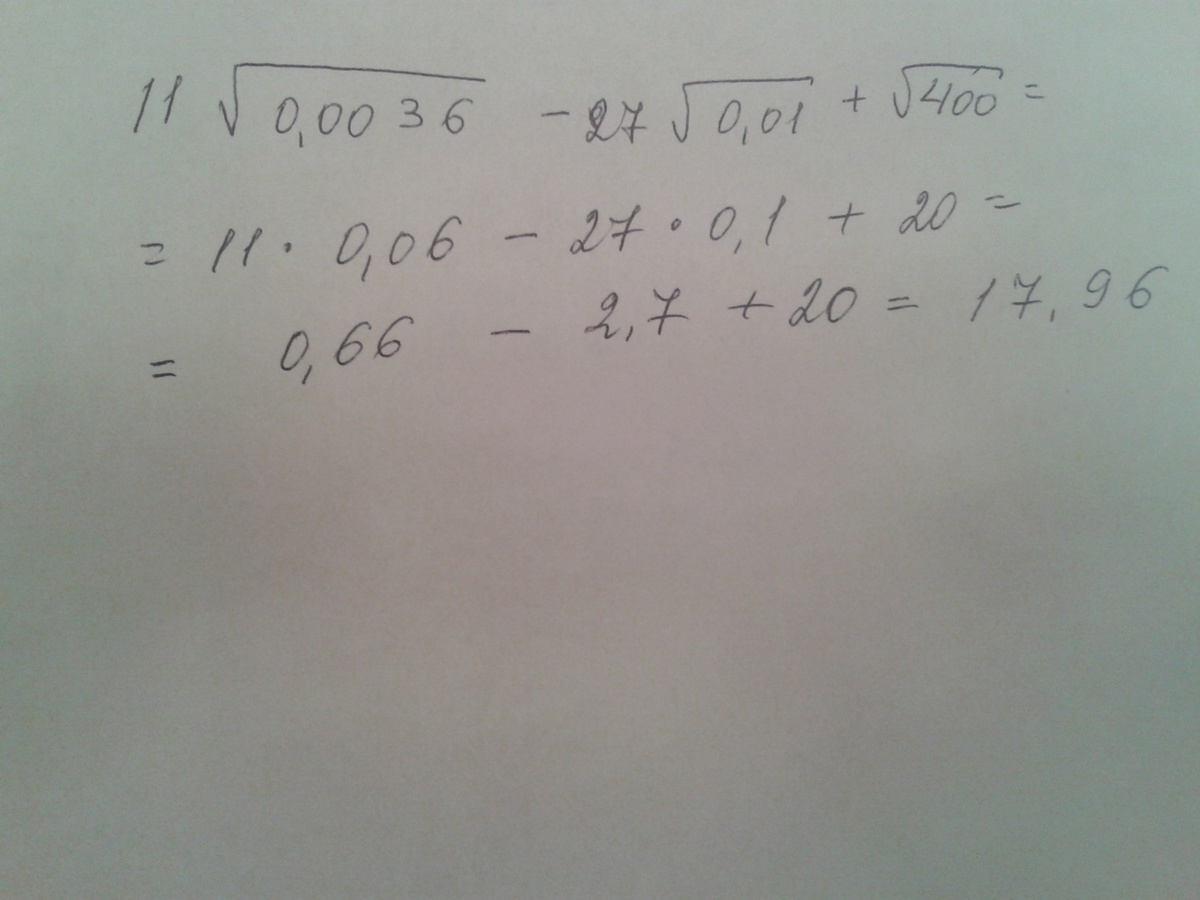 11 √0,0036 - 27 √0,01 + √400 =
= 11 · 0,06 - 27 · 0,1 + 20 =
= 0,66 - 2,7 + 20 = 17,96